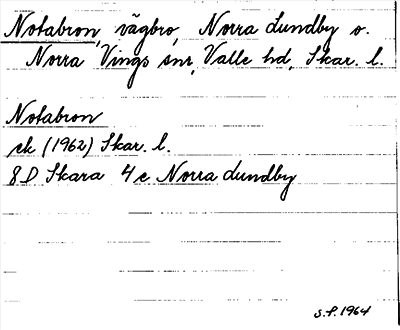 Notabron, vägbro, Norra Lundby o.
Norra Vings snr, Valle hd, Skar. l.
Notabron
ek (1962) Skar. l.
8D Skara 4c Norra Lundby
S.P. 1964